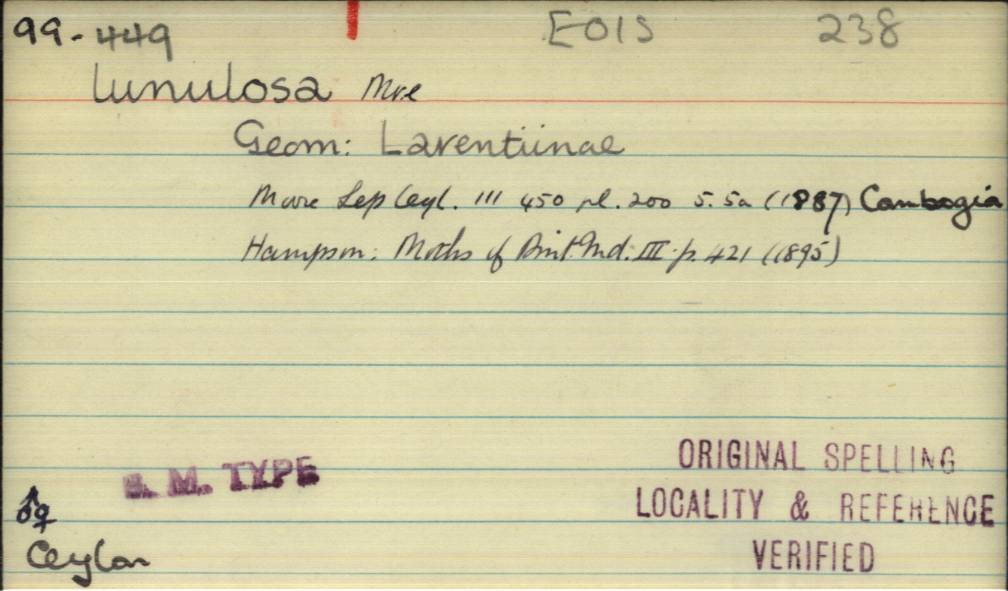 99-449 EOIS 238
lunulosa Mre
Geom: Larentiinae
Moore Lep Ceyl. III 450 pl. 200 5.5a (1887) Cambogia
Hampson: Moths of Brit. Ind. III p. 421 (1895)
B. M. TYPE
ORIGINAL SPELLING
LOCALITY & REFERENCE
VERIFIED
♂♀
Ceylon